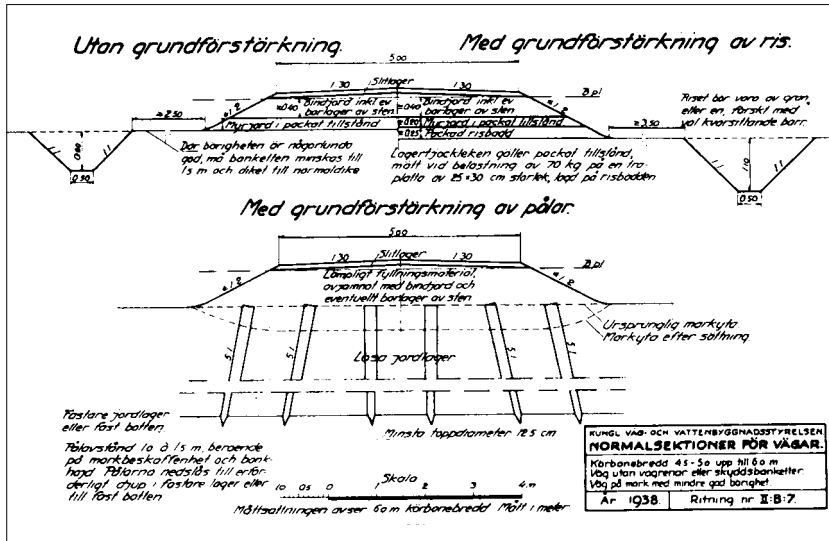 Utan grundförstärkning.
Med grundförstärkning av ris.
500
1:30 Slitlager 1:30
B.pl
≥2.50
≥3.50
≥0.40 Bindjord inkl ev
barlager av sten
≥0.40 Bindjord inkl ev
barlager av sten
Myrjord i packat tillstånd
≥0.20 Myrjord i packat tillstånd
≥0.25 Packad risbädd
Riset bör vara av gran,
eller en, färskt med
väl kvarsittande barr.
Där bärigheten är någorlunda
god, må banketten minskas till
1.5 m och diket till normaldike
Lagertjockleken gäller packat tillstånd,
mätt vid belastning av 70 kg på en trä-
platta av 25×30 cm storlek, lagd på risbädden
1:1
0.50
1:1
1.10
0.50
Med grundförstärkning av pålar.
500
1:30 Slitlager 1:30
B.pl
Lämpligt fyllningsmaterial,
avjämnat med bindjord och
eventuellt bärlager av sten
Ursprunglig markyta
Markyta efter sättning
5:1
Lösa jordlager
Fastare jordlager
eller fast botten.
Minsta toppdiameter 12.5 cm
Pålavstånd 1.0 à 1.5 m, beroende
på markbeskaffenhet och bank-
höjd. Pålarna nedslås till erfor-
derligt djup i fastare lager eller
till fast botten
Skala
1.0 0.5 0 1 2 3 4 m
Måttsättningen avser 6.0 m körbanebredd Mått i meter
KUNGL VÄG- OCH VATTENBYGGNADSSTYRELSEN
NORMALSEKTIONER FÖR VÄGAR.
Körbanebredd 4.5-5.0 upp till 6.0 m
Väg utan vägrenar eller skyddsbanketter.
Väg på mark med mindre god bärighet.
År 1938. Ritning nr II:B:7.